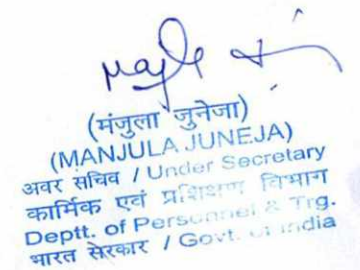 (मंजुला जुनेजा)
(MANJULA JUNEJA)
अवर सचिव / Under Secretary
कार्मिक एवं प्रशिक्षण विभाग
Deptt. of Personnel & Trg.
भारत सरकार / Govt. of India